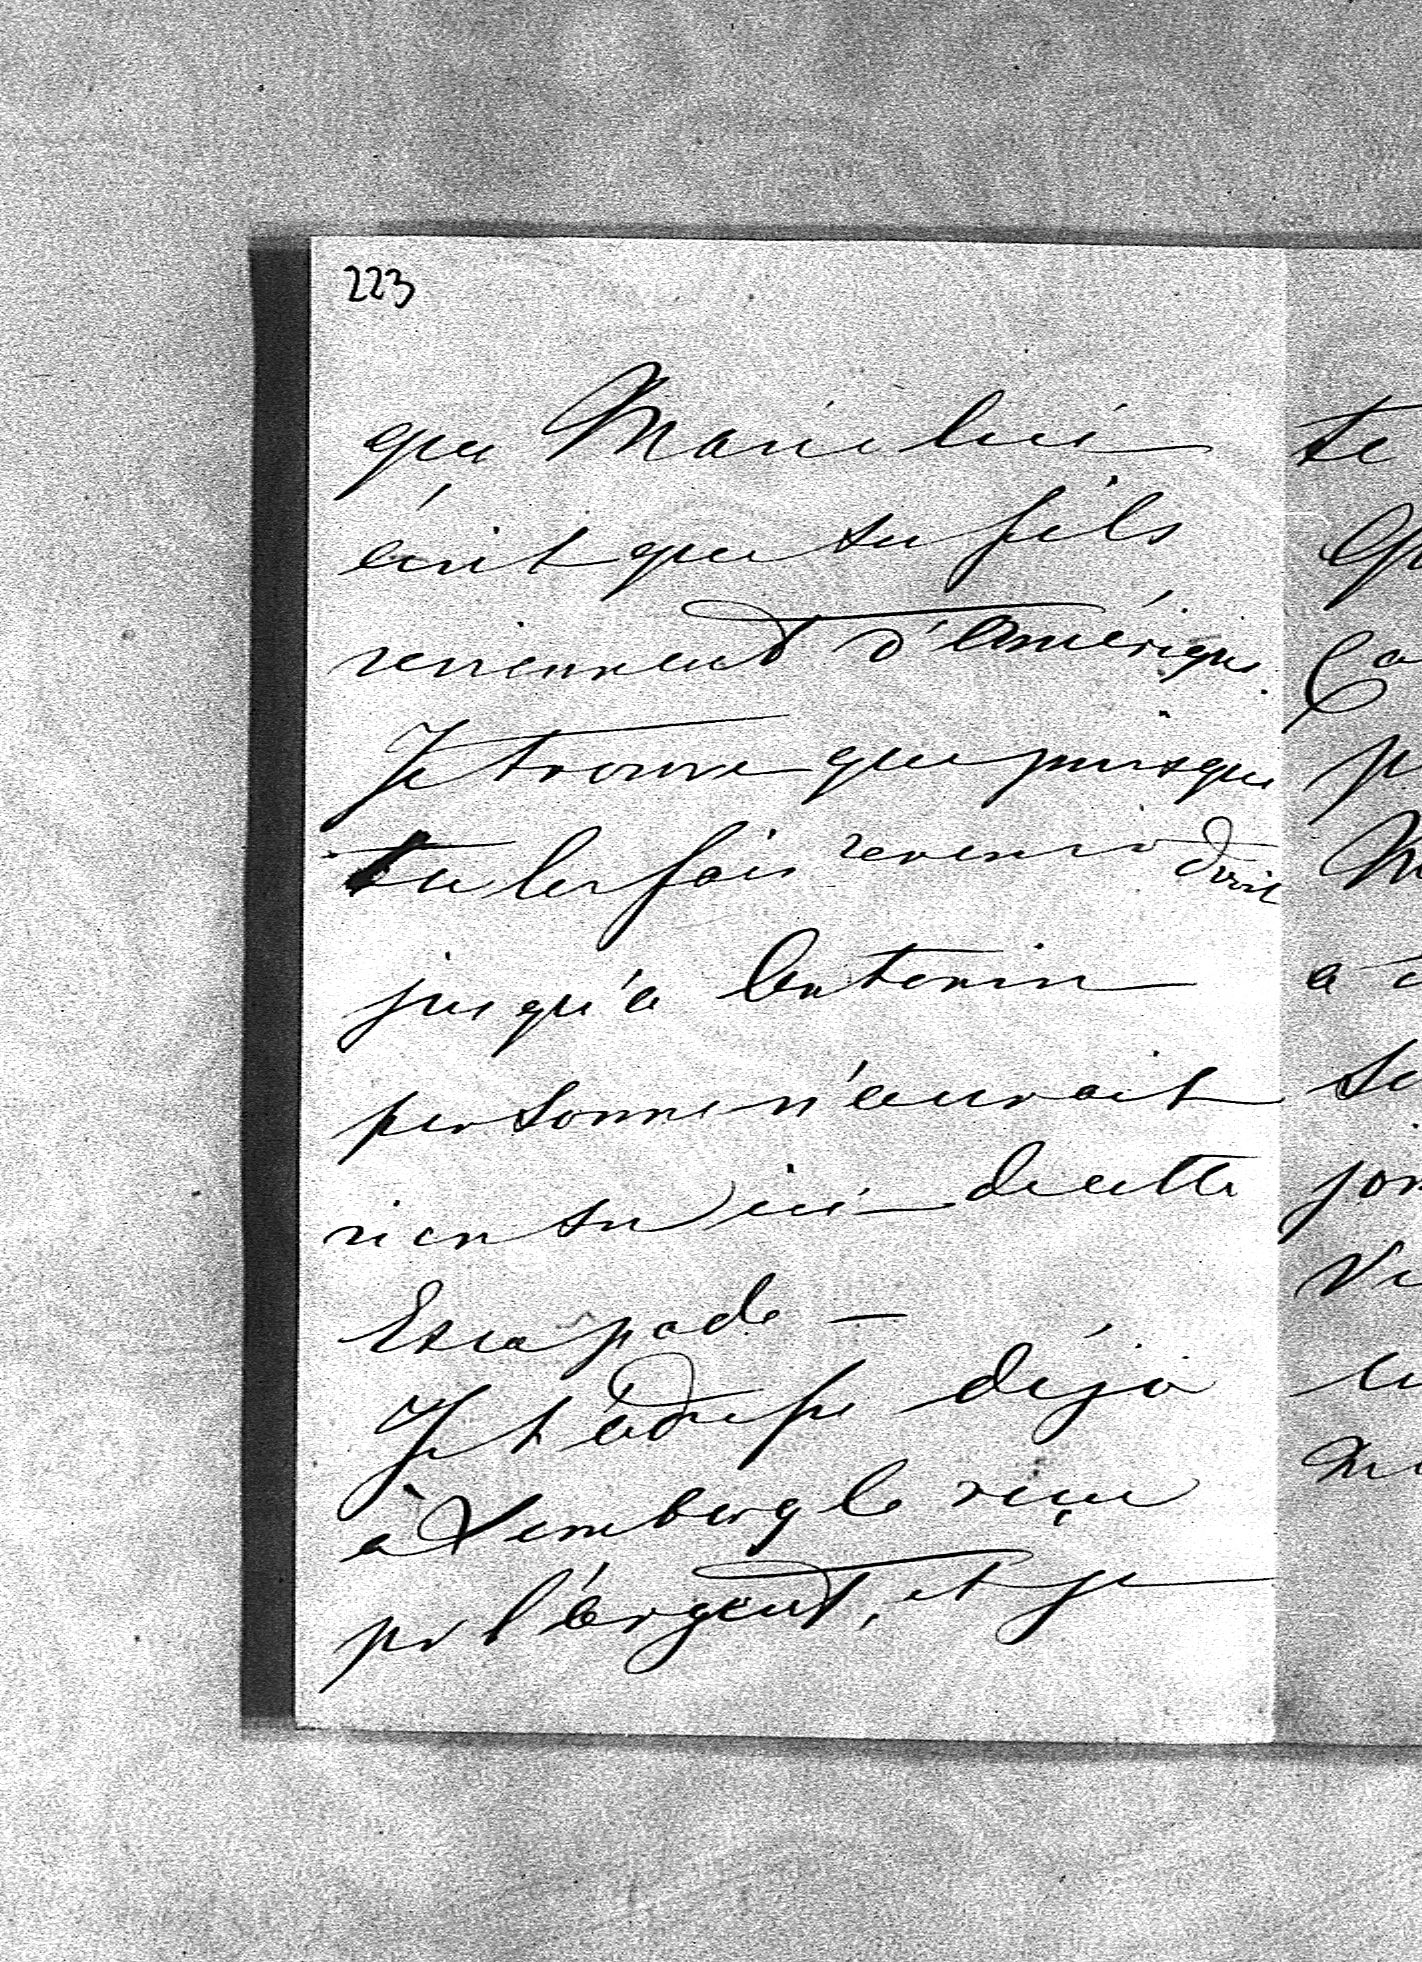 223
que Marie lui
écrit que tu fils
reviennent d'Amérique.
Je trouve que puisque
tu les fais revenir droit
jusqu'à Antonin
personne n'aurait
rien su ici de cette
Escapade —
Je t'adresse déjà
à Lemberg le reçu
pr l'argent, et je